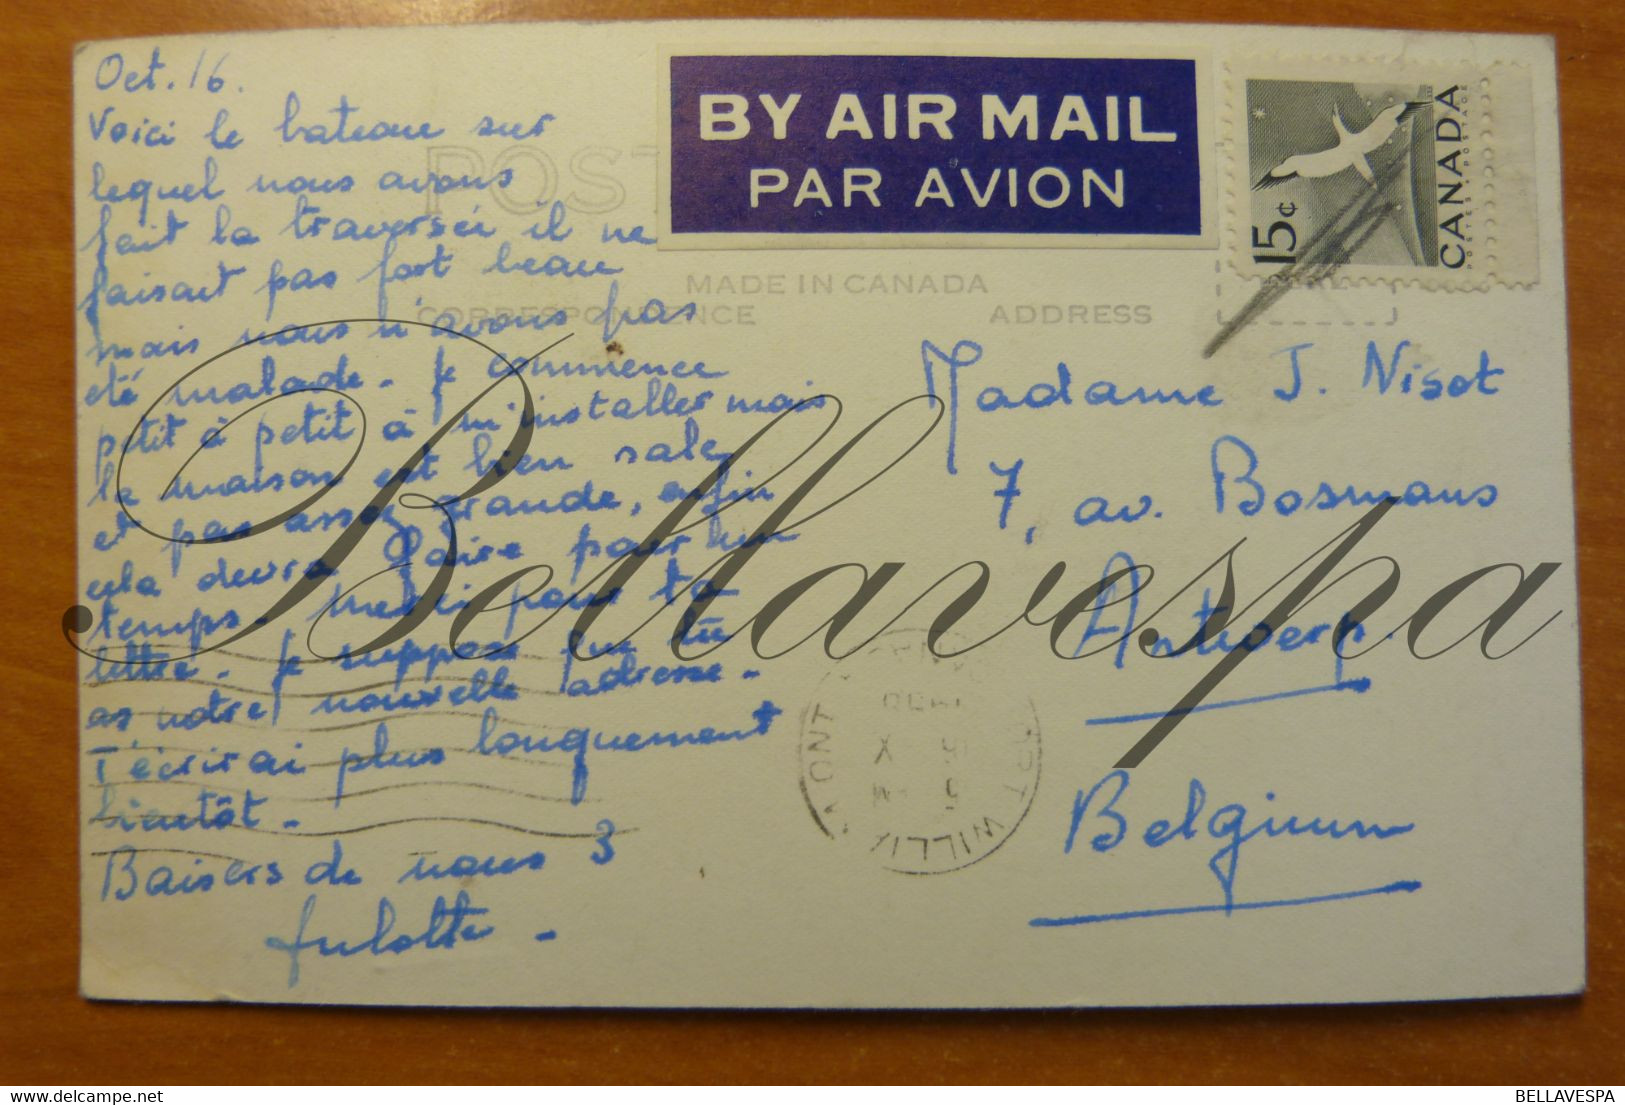 Oct. 16.
Voici le bateau sur
lequel nous avons
fait la traversée il ne
faisait pas fort beau
mais nous n'avons pas
été malade - Je commence
petit à petit à m'installer mais
la maison est bien sale
et pas assez grande, enfin
cela devra faire pour un
temps - Merci pour ta
lettre - Je suppose que tu
as notre nouvelle adresse -
T'écrirai plus longuement
bientôt -
Baisers de nous 3
Julotte -
POST
BY AIR MAIL
PAR AVION
15¢
CANADA
POSTES POSTAGE
MADE IN CANADA
CORRESPONDENCE
ADDRESS
Madame J. Nisot
7, av. Bosmans
Antwerp.
Belgium
ONT
WILLIA
Bellavespa
BELLAVESPA